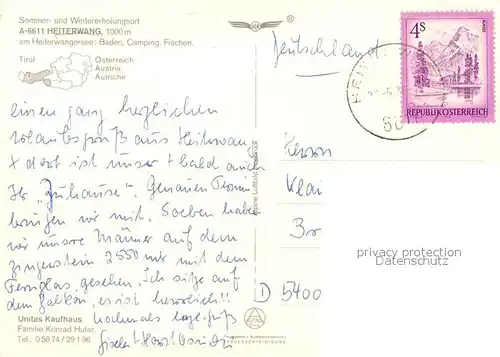 Sommer- und Wintererholungsort
A-6611 HEITERWANG, 1000 m
am Heiterwangersee: Baden, Camping, Fischen.
Tirol
Österreich
Austria
Autriche
Deutschland
4 S
REPUBLIK ÖSTERREICH
einen ganz herzlichen
Urlaubsgruß aus Heiterwang
dort ist unser + bald auch
Ihr "Zuhause". Genauen Termin
bringen wir mit. Soeben haben
wir unsere Männer auf dem
2550 mtr mit dem
Fernglas gesehen. Ich sitze auf
dem Balkon, es ist herrlich!!
Nochmals
Herrn
D 5400
Unitas Kaufhaus
Familie Konrad Huter,
Tel.: 0 56 74 / 29 1 96
privacy protection
Datenschutz